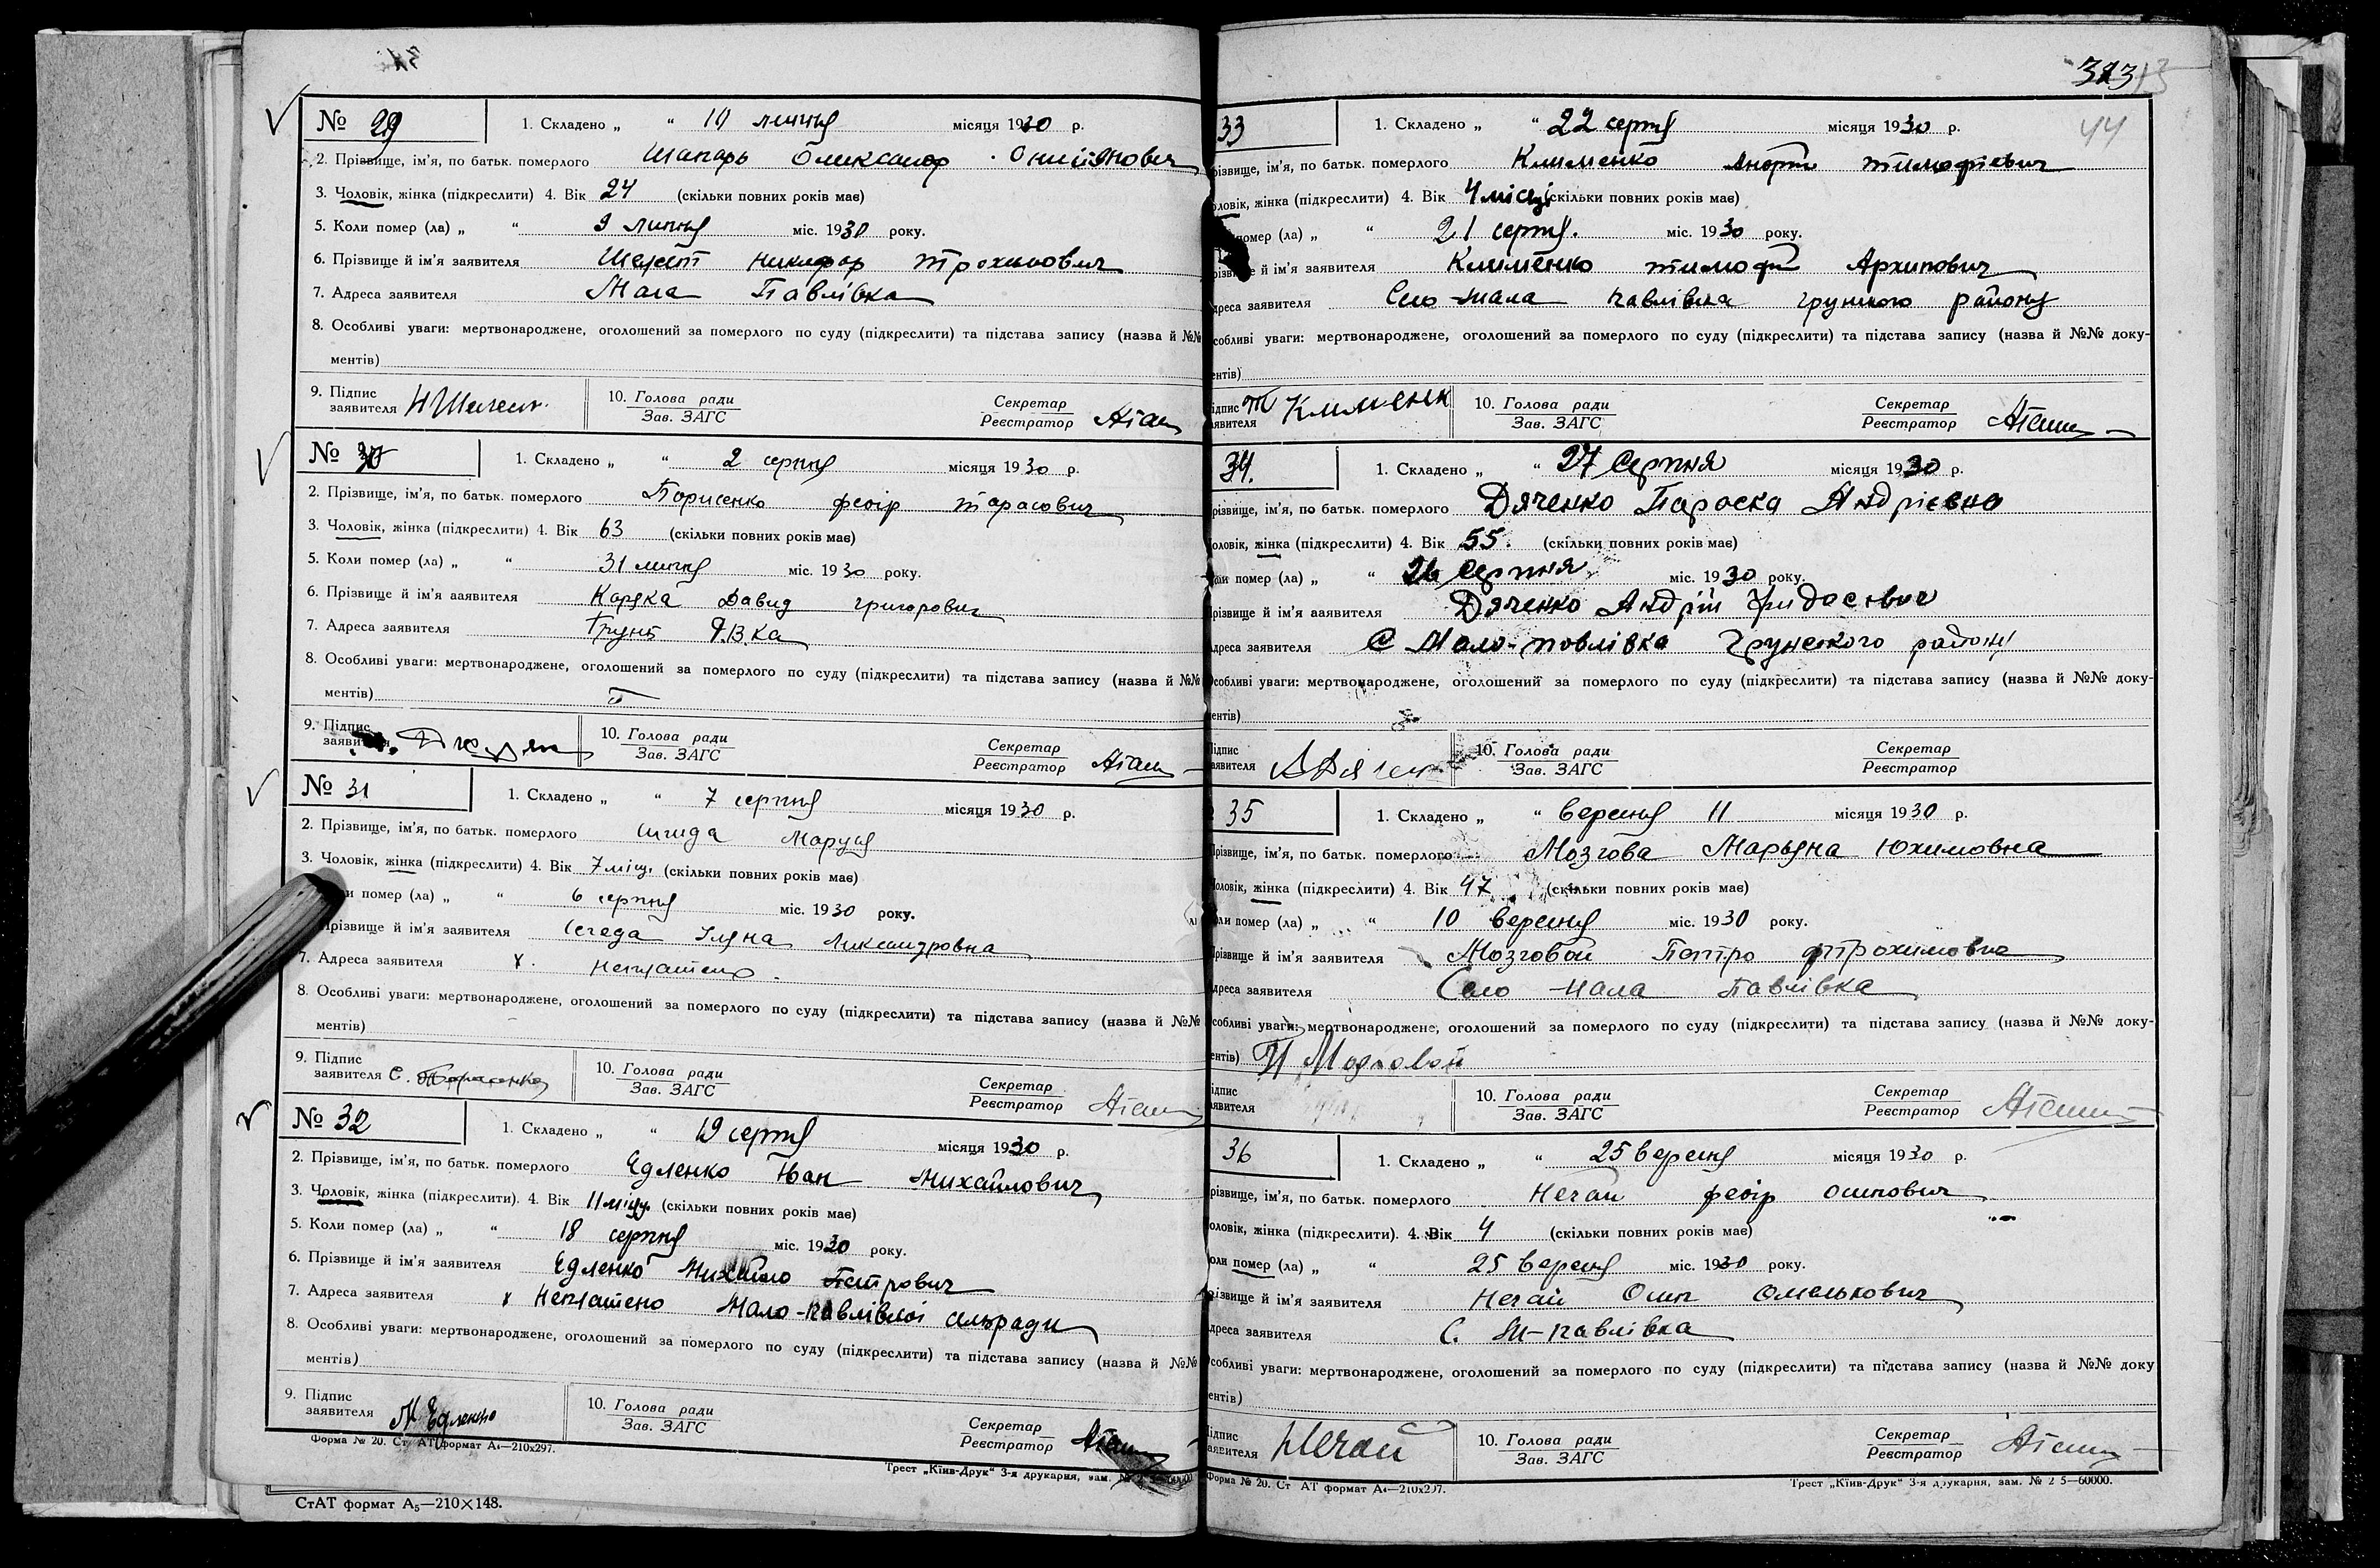 3123 13
44
№ 29 1. Складено „ “ 10 липня місяця 1930 р.
2. Прізвище, ім'я, по батьк. померлого Шапарь Олександр
3. Чоловік, жінка (підкреслити) 4. Вік 24 (скільки повних років має)
5. Коли помер (ла) „ “ 9 липня міс. 1930 року.
6. Прізвище й ім'я заявителя Шелест Никифор Трохимович
7. Адреса заявителя Мала Павлівка
8. Особливі уваги: мертвонароджене, оголошений за померлого по суду (підкреслити) та підстава запису (назва й №№
ментів)
9. Підпис заявителя Н Шелест 10. Голова ради Зав. ЗАГС Секретар Реєстратор
№ 30 1. Складено „ “ 2 серпня місяця 1930 р.
2. Прізвище, ім'я, по батьк. померлого Борисенко федір тарасович
3. Чоловік, жінка (підкреслити) 4. Вік 63 (скільки повних років має)
5. Коли помер (ла) „ “ 31 липня міс. 1930 року.
6. Прізвище й ім'я заявителя Коряка Давид григорович
7. Адреса заявителя Грунь
8. Особливі уваги: мертвонароджене, оголошений за померлого по суду (підкреслити) та підстава запису (назва й №№
ментів)
9. Підпис заявителя 10. Голова ради Зав. ЗАГС Секретар Реєстратор
№ 31 1. Складено „ “ 7 серпня місяця 1930 р.
2. Прізвище, ім'я, по батьк. померлого Маруся
3. Чоловік, жінка (підкреслити) 4. Вік 7 міц. (скільки повних років має)
ли помер (ла) „ “ 6 серпня міс. 1930 року.
Прізвище й ім'я заявителя Сегеда Уляна Лександровна
7. Адреса заявителя х.
8. Особливі уваги: мертвонароджене, оголошений за померлого по суду (підкреслити) та підстава запису (назва й №№
ментів)
9. Підпис заявителя С. 10. Голова ради Зав. ЗАГС Секретар Реєстратор
№ 32 1. Складено „ “ 19 серпня місяця 1930 р.
2. Прізвище, ім'я, по батьк. померлого Едленко Іван Михайлович
3. Чоловік, жінка (підкреслити). 4. Вік 11 міц. (скільки повних років має)
5. Коли помер (ла) „ “ 18 серпня міс. 1930 року.
6. Прізвище й ім'я заявителя Едленко Михайло Петрович
7. Адреса заявителя х Мало-павлівскої сільради
8. Особливі уваги: мертвонароджене, оголошений за померлого по суду (підкреслити) та підстава запису (назва й №№
ментів)
9. Підпис заявителя М Едленко 10. Голова ради Зав. ЗАГС Секретар Реєстратор
Форма № 20. Ст АТ формат А4—210х297.
Трест „Київ-Друк“ 3-я друкарня, зам.
СтАТ формат А5—210×148.
33 1. Складено „ “ 22 серпня місяця 1930 р.
різвище, ім'я, по батьк. померлого Клименко тимофієвич
оловік, жінка (підкреслити) 4. Вік 4 місяці (скільки повних років має)
помер (ла) „ “ 21 серпня. міс. 1930 року.
різвище й ім'я заявителя Клименко тимофій Архипович
дреса заявителя Село мала павлівка грунського району
собливі уваги: мертвонароджене, оголошений за померлого по суду (підкреслити) та підстава запису (назва й №№ доку-
ентів)
ідпис аявителя Т Клименк 10. Голова ради Зав. ЗАГС Секретар Реєстратор
34. 1. Складено „ “ 27 Серпня місяця 1930 р.
різвище, ім'я, по батьк. померлого Дяченко Параска Андрієвна
оловік, жінка (підкреслити) 4. Вік 55. (скільки повних років має)
ли помер (ла) „ “ 26 Серпня міс. 1930 року.
різвище й ім'я заявителя Дяченко Андрій
дреса заявителя С Мало-Повлівка Грунского району
Особливі уваги: мертвонароджене, оголошений за померлого по суду (підкреслити) та підстава запису (назва й №№ доку-
ментів)
Підпис аявителя 10. Голова ради Зав. ЗАГС Секретар Реєстратор
35 1. Складено „ “ вересня 11 місяця 1930 р.
Прізвище, ім'я, по батьк. померлого Мозгова Марьяна Юхимовна
Чоловік, жінка (підкреслити) 4. Вік 47 (скільки повних років має)
оли помер (ла) „ “ 10 вересня міс. 1930 року.
Прізвище й ім'я заявителя Мозговой Петро
дреса заявителя Село Мала Павлівка
собливі уваги: мертвонароджене, оголошений за померлого по суду (підкреслити) та підстава запису (назва й №№ доку-
ентів) П Мозговой
ідпис аявителя 10. Голова ради Зав. ЗАГС Секретар Реєстратор
36 1. Складено „ “ 25 вересня місяця 1930 р.
різвище, ім'я, по батьк. померлого Нечай федір осипович
оловік, жінка (підкреслити). 4. Вік 4 (скільки повних років має)
оли помер (ла) „ “ 25 вересня міс. 1930 року.
різвище й ім'я заявителя Нечай Осип Омелькович
дреса заявителя С. М-павлівка
Особливі уваги: мертвонароджене, оголошений за померлого по суду (підкреслити) та підстава запису (назва й №№ доку
ентів)
ідпис аявителя Нечай 10. Голова ради Зав. ЗАГС Секретар Реєстратор
Форма № 20. Ст АТ формат А4—210х297.
Трест „Київ-Друк“ 3-я друкарня, зам. № 2 5—60000.